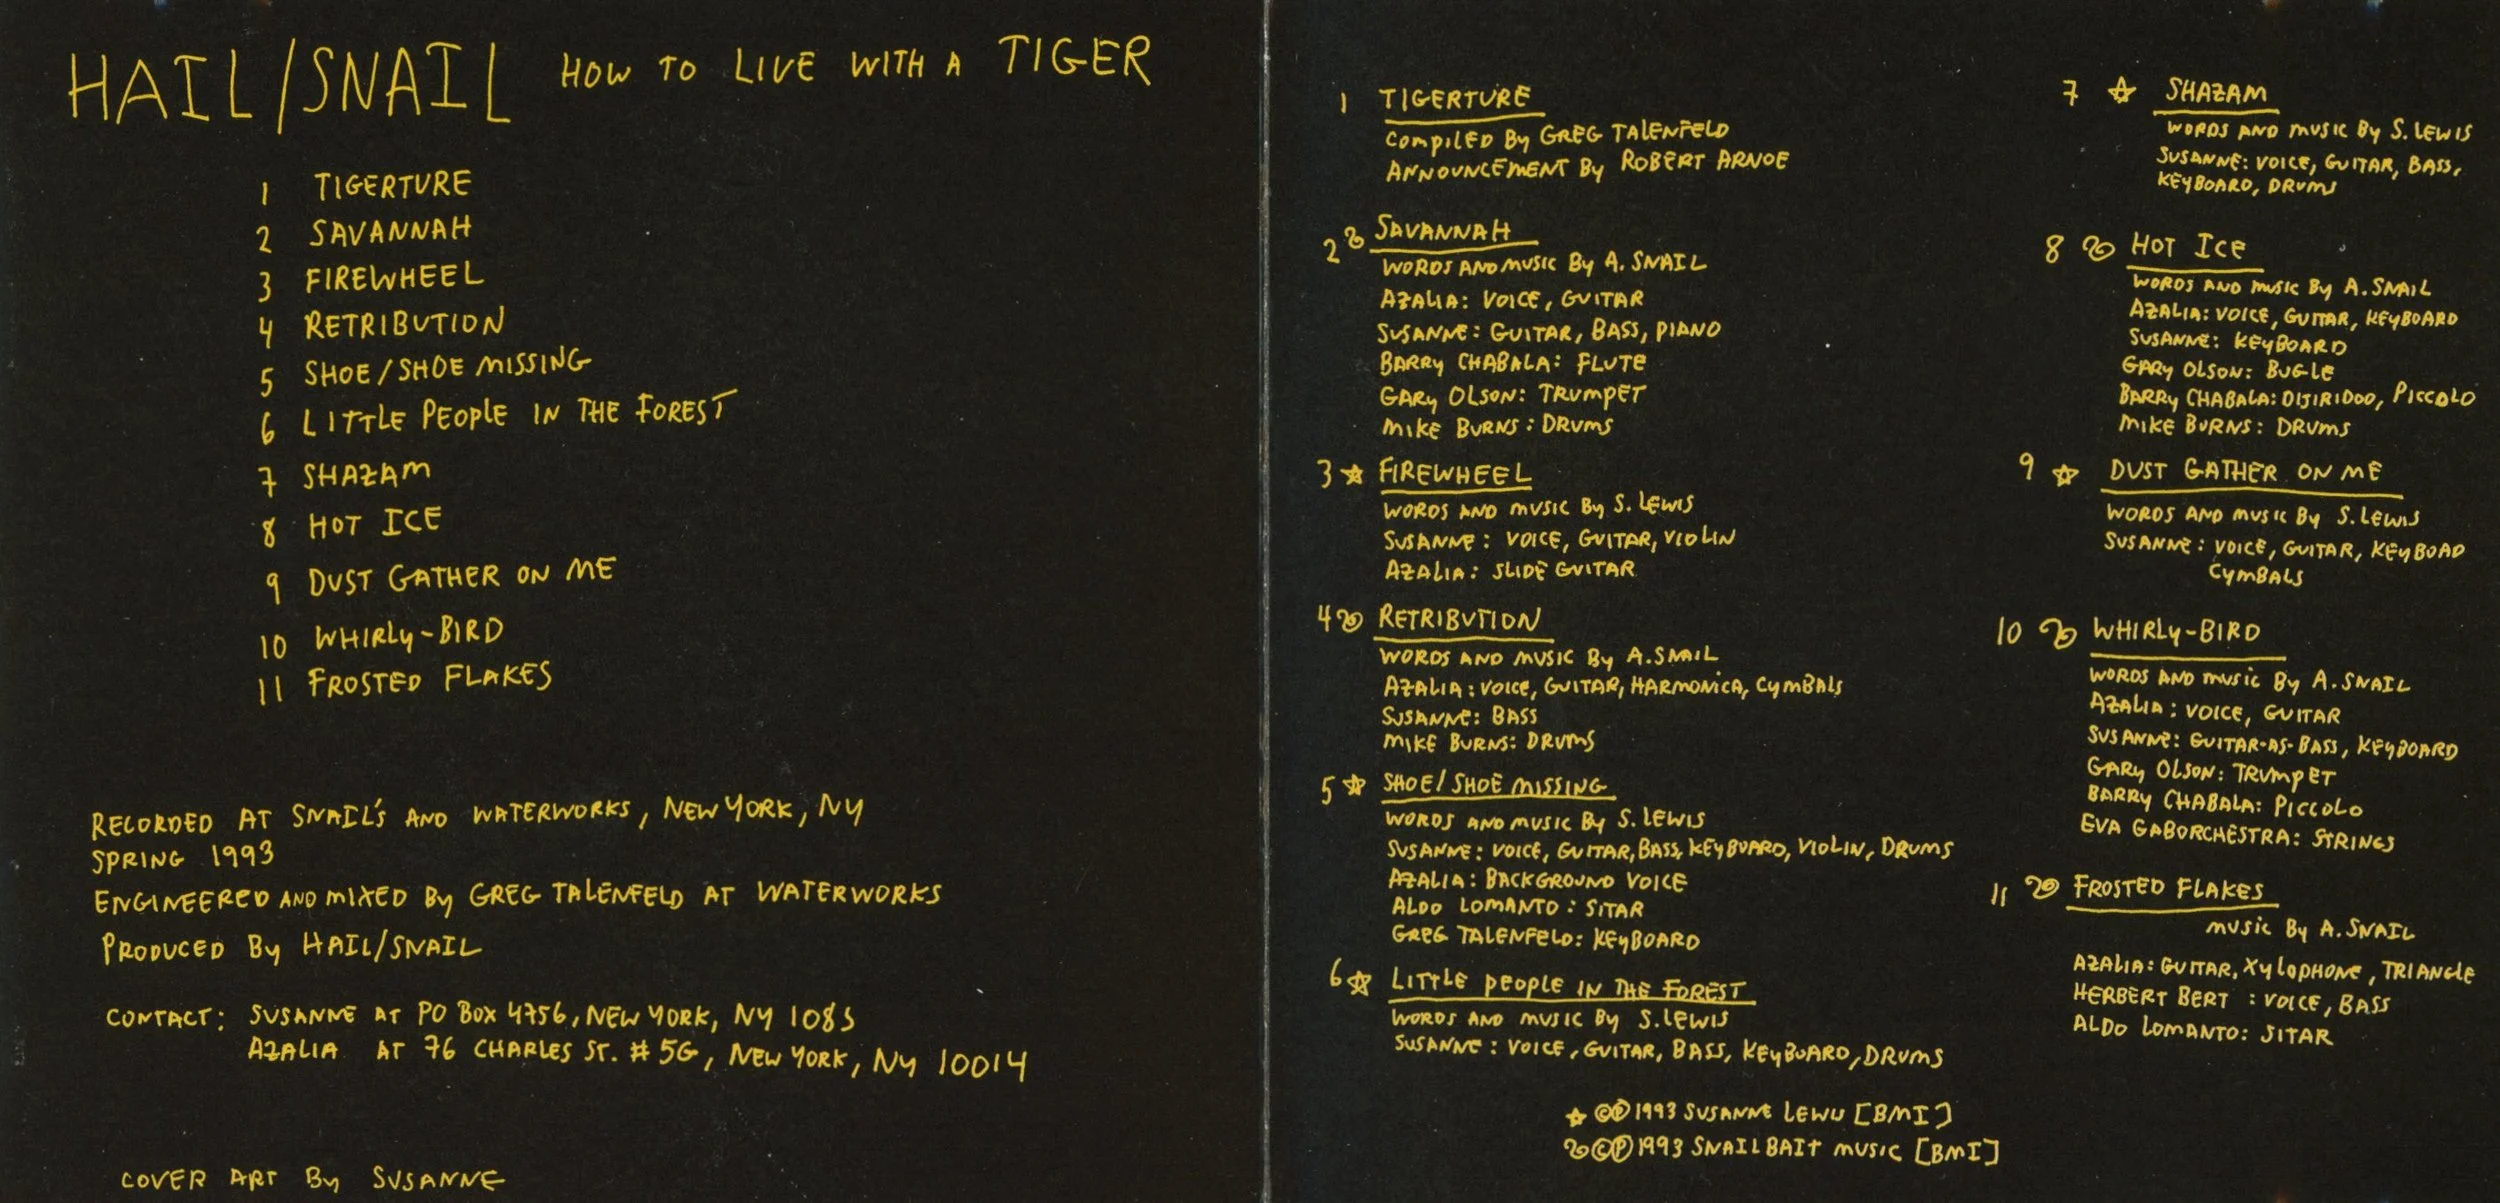 HAIL/SNAIL HOW TO LIVE WITH A TIGER
1 TIGERTURE
2 SAVANNAH
3 FIREWHEEL
4 RETRIBUTION
5 SHOE/SHOE MISSING
6 LITTLE PEOPLE IN THE FOREST
7 SHAZAM
8 HOT ICE
9 DUST GATHER ON ME
10 WHIRLY-BIRD
11 FROSTED FLAKES
RECORDED AT SNAIL'S AND WATERWORKS, NEW YORK, NY
SPRING 1993
ENGINEERED AND MIXED BY GREG TALENFELD AT WATERWORKS
PRODUCED BY HAIL/SNAIL
CONTACT: SUSANNE AT PO BOX 4756, NEW YORK, NY 1085
AZALIA AT 76 CHARLES ST. # 5G, NEW YORK, NY 10014
COVER ART BY SUSANNE
1 TIGERTURE
COMPILED BY GREG TALENFELD
ANNOUNCEMENT BY ROBERT ARNOE
2 SAVANNAH
WORDS AND MUSIC BY A. SNAIL
AZALIA: VOICE, GUITAR
SUSANNE: GUITAR, BASS, PIANO
BARRY CHABALA: FLUTE
GARY OLSON: TRUMPET
MIKE BURNS: DRUMS
3 ☆ FIREWHEEL
WORDS AND MUSIC BY S. LEWIS
SUSANNE: VOICE, GUITAR, VIOLIN
AZALIA: SLIDE GUITAR
4 RETRIBUTION
WORDS AND MUSIC BY A. SNAIL
AZALIA: VOICE, GUITAR, HARMONICA, CYMBALS
SUSANNE: BASS
MIKE BURNS: DRUMS
5 ☆ SHOE/SHOE MISSING
WORDS AND MUSIC BY S. LEWIS
SUSANNE: VOICE, GUITAR, BASS, KEYBOARD, VIOLIN, DRUMS
AZALIA: BACKGROUND VOICE
ALDO LOMANTO: SITAR
GREG TALENFELD: KEYBOARD
6 ☆ LITTLE PEOPLE IN THE FOREST
WORDS AND MUSIC BY S. LEWIS
SUSANNE: VOICE, GUITAR, BASS, KEYBOARD, DRUMS
7 ☆ SHAZAM
WORDS AND MUSIC BY S. LEWIS
SUSANNE: VOICE, GUITAR, BASS,
KEYBOARD, DRUMS
8 HOT ICE
WORDS AND MUSIC BY A. SNAIL
AZALIA: VOICE, GUITAR, KEYBOARD
SUSANNE: KEYBOARD
GARY OLSON: BUGLE
BARRY CHABALA: DIJIRIDOO, PICCOLO
MIKE BURNS: DRUMS
9 ☆ DUST GATHER ON ME
WORDS AND MUSIC BY S. LEWIS
SUSANNE: VOICE, GUITAR, KEYBOAD
CYMBALS
10 WHIRLY-BIRD
WORDS AND MUSIC BY A. SNAIL
AZALIA: VOICE, GUITAR
SUSANNE: GUITAR-AS-BASS, KEYBOARD
GARY OLSON: TRUMPET
BARRY CHABALA: PICCOLO
EVA GABORCHESTRA: STRINGS
11 FROSTED FLAKES
MUSIC BY A. SNAIL
AZALIA: GUITAR, XYLOPHONE, TRIANGLE
HERBERT BERT : VOICE, BASS
ALDO LOMANTO: SITAR
☆ ©℗ 1993 SUSANNE LEWU [BMI]
©℗ 1993 SNAILBAIT MUSIC [BMI]